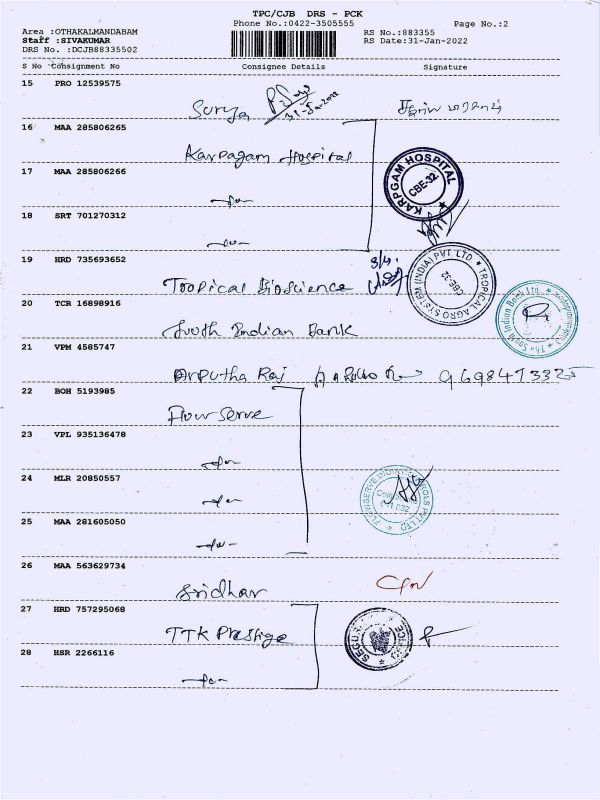 TPC/CJB DRS - PCK
Phone No.:0422-3505555
Page No.:2
Area :OTHAKALMANDABAM
Staff :SIVAKUMAR
DRS No. :DCJB88335502
RS No.:883355
RS Date:31-Jan-2022
S No Consignment No Consignee Details Signature
15 PRO 12539575
Surya
16 MAA 285806265
Karpagam Hospital
KARPAGAM HOSPITAL
CBE-32
17 MAA 285806266
-do-
18 SRT 701270312
-do-
19 HRD 735693652
Tropical Bioscience
TROPICAL AGRO SYSTEM (INDIA) PVT. LTD.
CBE-32
20 TCR 16898916
South Indian Bank
The South Indian Bank Ltd.
21 VPM 4585747
Arputha Raj
22 BOH 5193985
Flow Serve
23 VPL 935136478
-do-
24 MLR 20850557
-do-
25 MAA 281605050
-do-
26 MAA 563629734
Sridhar
27 HRD 757295068
TTK Prestige
28 HSR 2266116
-do-